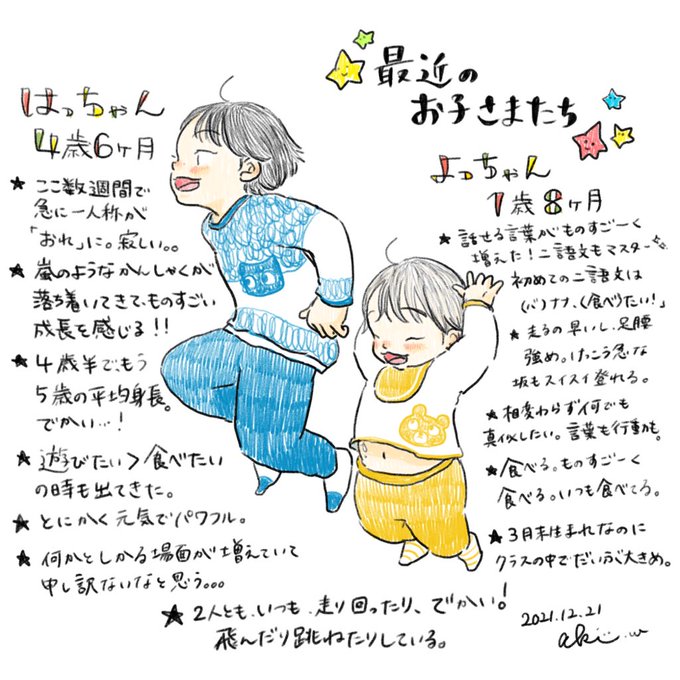 最近の
お子さまたち
はっちゃん
4歳6ヶ月
★ ここ数週間で
急に一人称が
「おれ」に。寂しい。。
★ 嵐のようなかんしゃくが
落ち着いてきて、ものすごい
成長を感じる!!
★ 4歳半でもう
5歳の平均身長。
でかい…!
★ 遊びたい>食べたい
の時も出てきた。
★ とにかく元気でパワフル。
★ 何かとしかる場面が増えていて
申し訳ないなと思う。。。
よっちゃん
1歳8ヶ月
★ 話せる言葉がものすごーく
増えた!二語文もマスター
初めての二語文は
「(バ)ナナ、(食べ)たい!」
★ 走るの早いし、足腰
強め。けっこう急な
坂もスイスイ登れる。
★ 相変わらず何でも
真似したい。言葉も行動も。
★ 食べる。ものすごーく
食べる。いつも食べてる。
★ 3月末生まれなのに
クラスの中でだいぶ大きめ。
★ 2人とも、いつも、走り回ったり、でかい!
飛んだり跳ねたりしている。
2021.12.21
aki